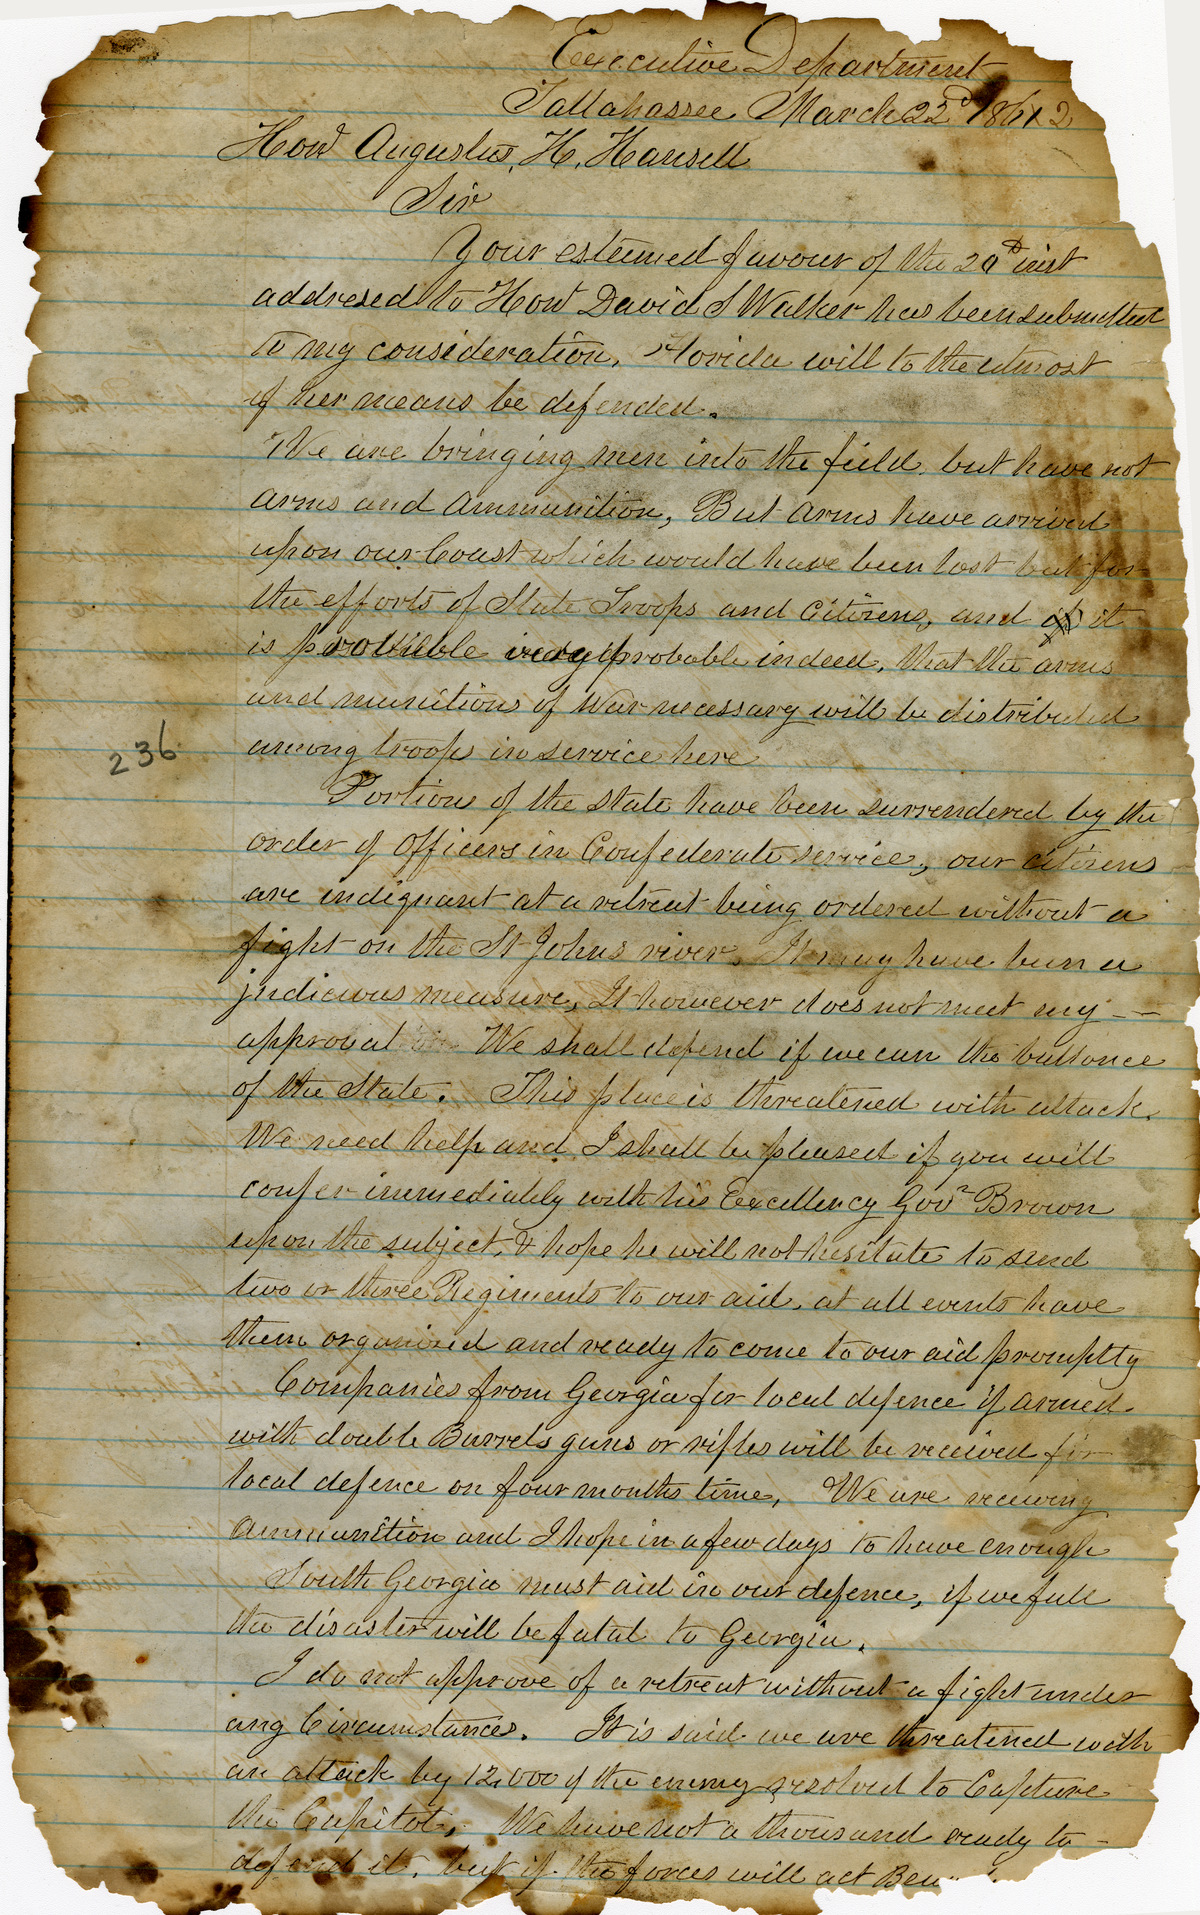 Executive Department
Tallahassee March 22d 1861 2
Hon Augustus, H, Hansell
Sir
Your esteemed favour of the 20th inst
addresed to Hon David S Walker has been submitted
to my consideration, Florida will to the utmost
of her means be defended.
We are bringing men into the field, but have not
arms and Ammunition, But Arms have arrived
upon our Coast which would have been lost but for
the efforts of State Troops and Citizens, and it
is probable very probable indeed, that the arms
and munitions of War necessary will be distributed
among troops in service here
236
Portions of the state have been surrendered by the
order of Officers in Confederate service, our citizens
are indignant at a retreat being ordered without a
fight on the St Johns river, It may have been a
judicious measure, It however does not meet my --
approval We shall defend if we can the ballance
of the State. This place is threatened with attack.
We need help and I shall be pleased if you will
confer immediately with his Excellency Gov Brown
upon the subject, & hope he will not hesitate to send
two or three Regiments to our aid, at all events have
them organized and ready to come to our aid promptly
Companies from Georgia for local defence if armed
with double Barrels guns or rifles will be received for
local defence on four months time, We are receiving
Ammunition and I hope in a few days to have enough
South Georgia must aid in our defence, if we fall
the disaster will be fatal to Georgia.
I do not approve of a retreat without a fight under
any Circumstances. It is said we are threatened with
an attack by 12,000 of the enemy resolved to Capture
the Capitol, We have not a thousand ready to -
defend it, but if the forces will act